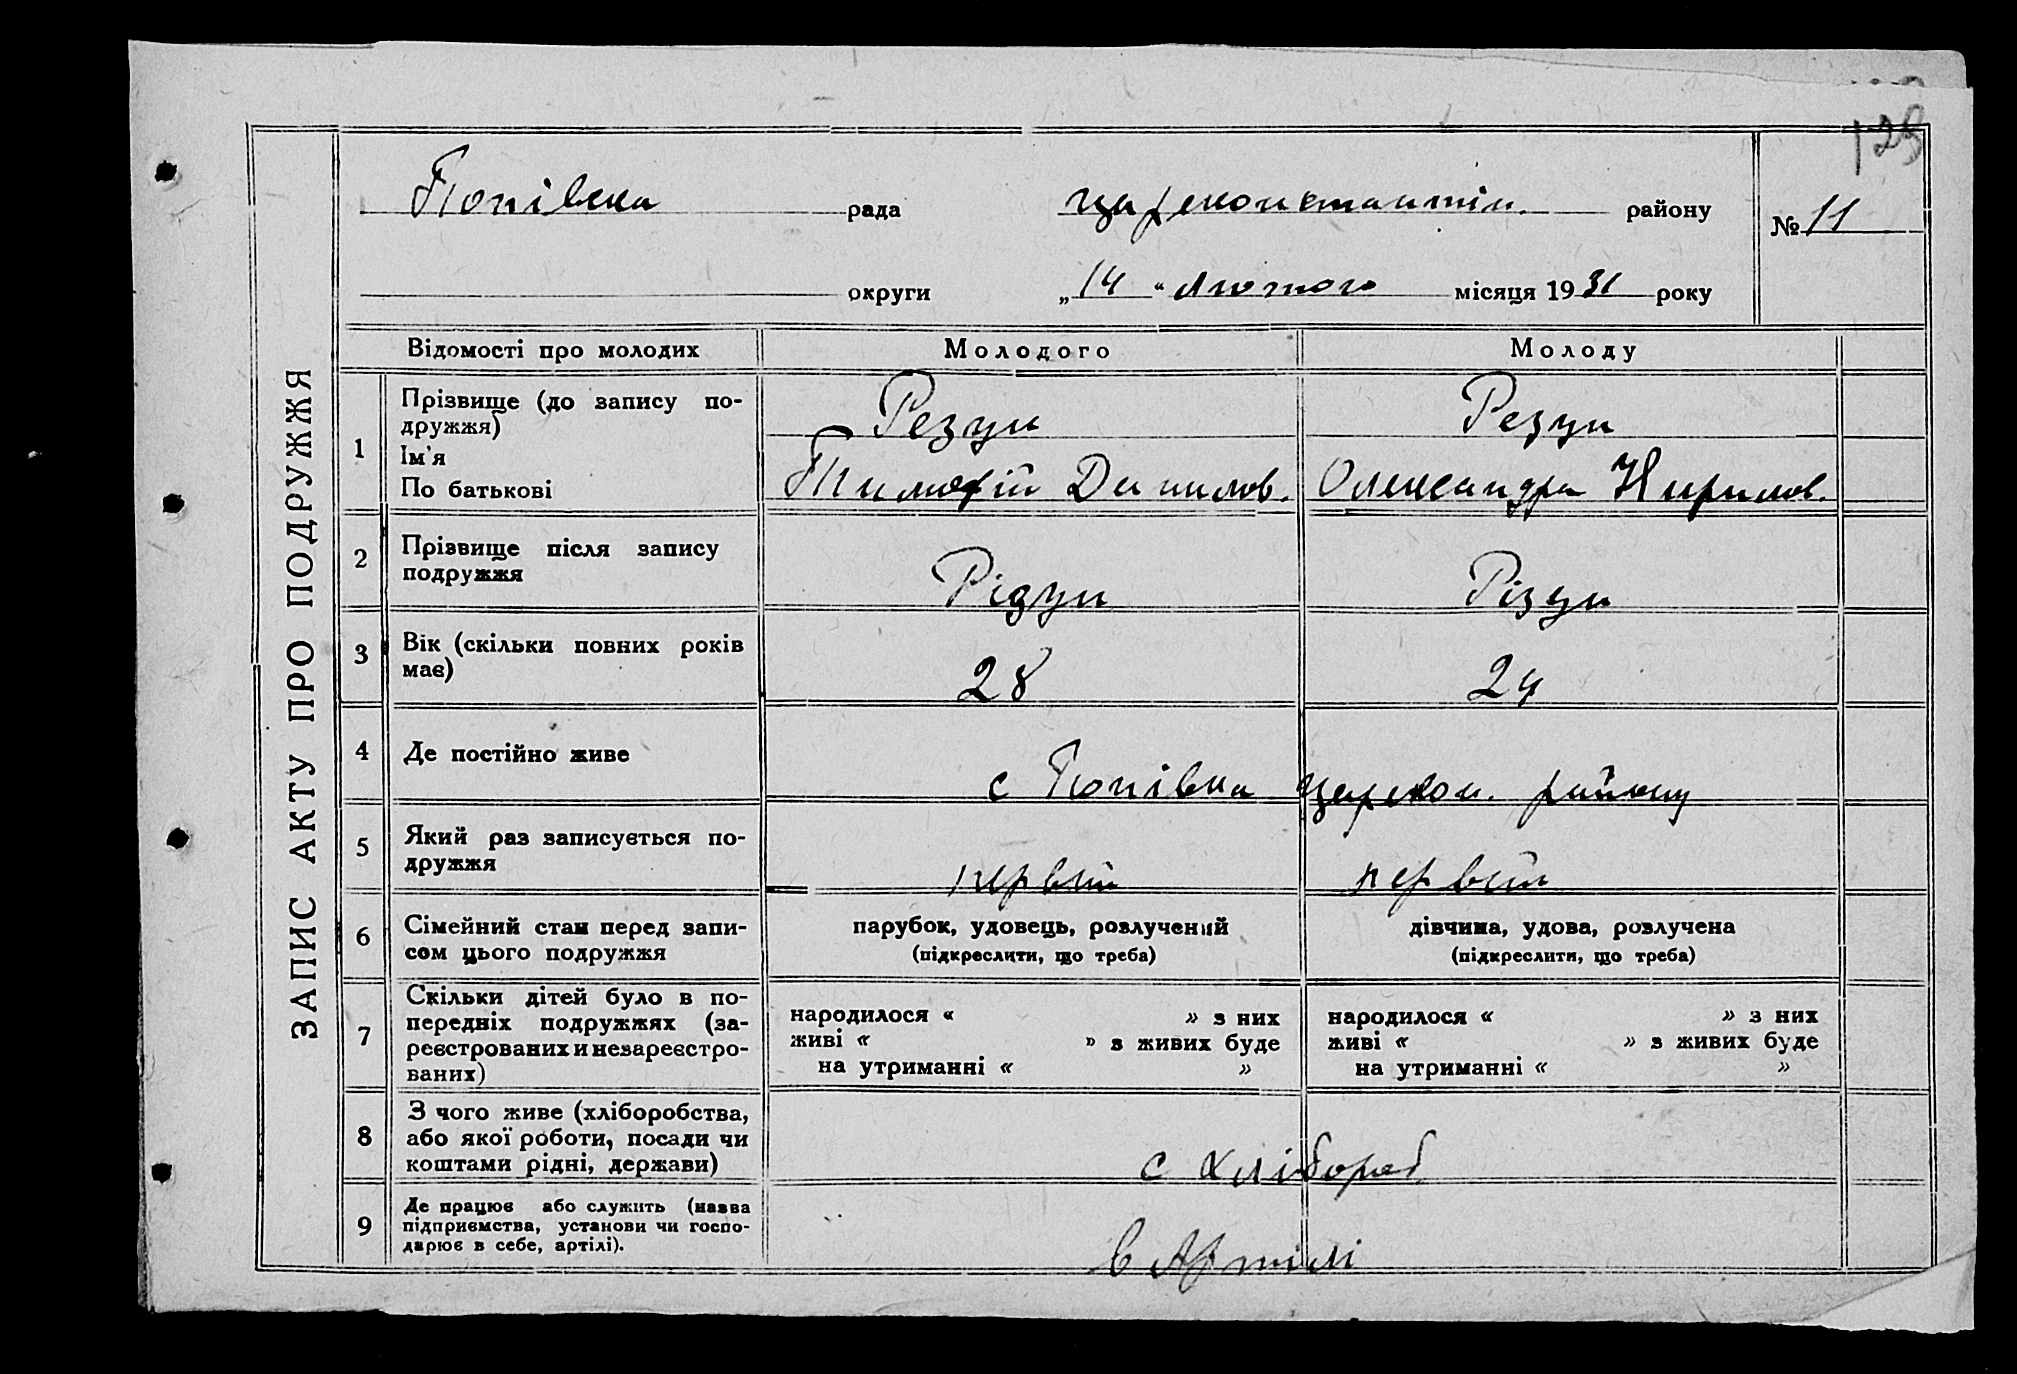 128
Попівска рада Цареконстантін. району № 11
округи „14“ Лютого місяця 1931 року
ЗАПИС АКТУ ПРО ПОДРУЖЖЯ
Відомості про молодих Молодого Молоду
1 Прізвище (до запису по-
дружжя) Резун Резун
Ім'я
По батькові Тимофій Данилов. Олександра Кирилов.
2 Прізвище після запису
подружжя Різун Різун
3 Вік (скільки повних років
має) 28 24
4 Де постійно живе с Попівка Царекон. району
5 Який раз записується по-
дружжя первий первий
6 Сімейний стан перед запи-
сом цього подружжя
парубок, удовець, розлучений
(підкреслити, що треба)
дівчина, удова, розлучена
(підкреслити, що треба)
7 Скільки дітей було в по-
передніх подружжях (за-
реєстрованих и незареєстро-
ваних)
народилося « » з них
живі « » з живих буде
на утриманні « »
народилося « » з них
живі « » з живих буде
на утриманні « »
8 З чого живе (хліборобства,
або якої роботи, посади чи
коштами рідні, держави) с хлібороб.
9 Де працює або служить (назва
підприємства, установи чи госпо-
дарює в себе, артілі).
в Артілі